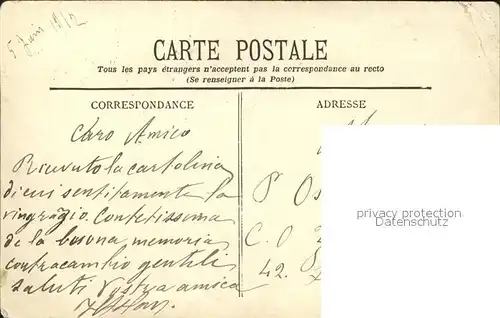 CARTE POSTALE
Tous les pays étrangers n'acceptent pas la correspondance au recto
(Se renseigner à la Poste)
CORRESPONDANCE
ADRESSE
Caro Amico
Ricevuto la cartolina
di cui sentitamente la
ringrazio Contetissema
de la bouona memoria
contracambio gentili
saluti Vostra amica
P Os
C. O
42.
privacy protection
Datenschutz